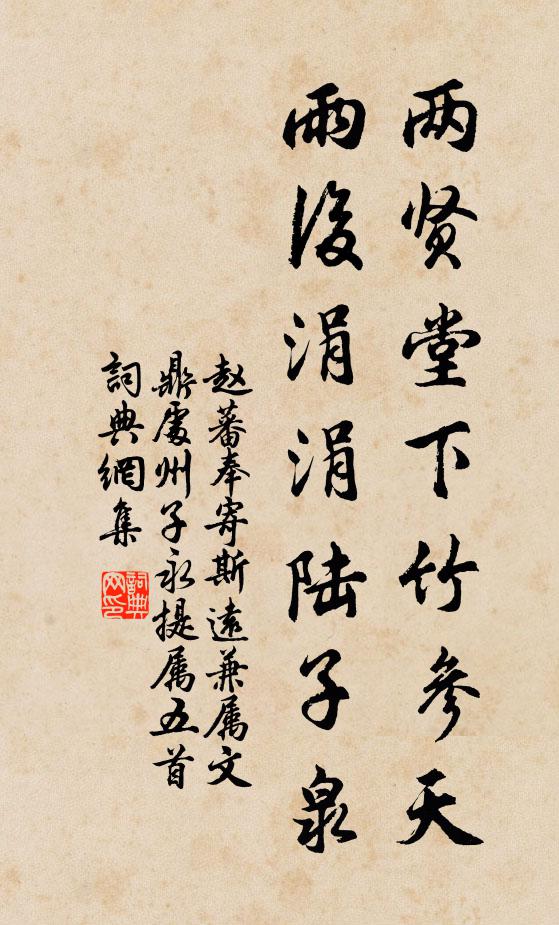 两贤堂下竹参天
雨後涓涓陆子泉
赵蕃奉寄斯远兼属文
鼎处州子永提属五首
詞典網集
詞典网印